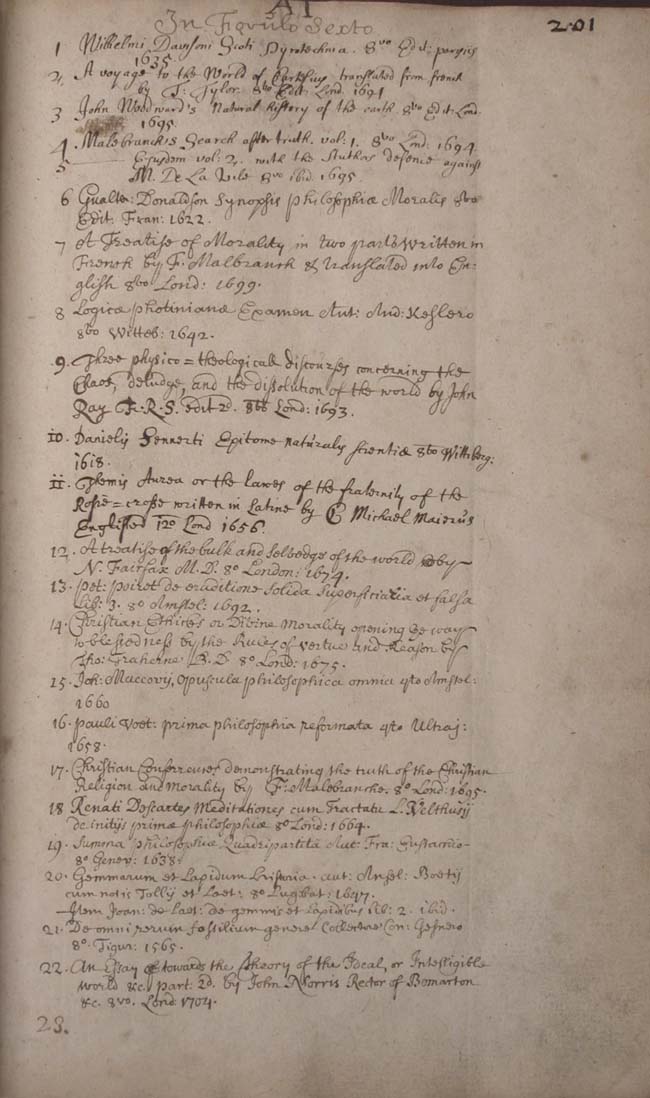 AI
In Figulo Sexto
201
1 Wilhelmi Davisoni Scoti Pyrotechnia. 8vo Edit: parisijs
1635
2, A voyage to the World of Cartesius translated from french
by T: Tylor. 8vo Edit: Lond: 1691
3 John Woodward's Natural history of the earth 8vo Edit Lond
1695.
4. Malebranch's Search after truth. vol: 1. 8vo Lond: 1694
5 Ejusdem vol: 2. with the Authors defence against
M. De La Vile 8vo ibid. 1695.
6 Gualte: Donaldson Synopsis Philosophiæ Moralis 8vo
Edit. Fran: 1622.
7 A Treatise of Morality in two parts written in
French by F. Malbranch & translated into En-
glish 8vo Lond: 1699.
8 Logicæ photinianæ Examen Aut: And: Keslero
8vo Witteb: 1642.
9. Three physico=theologicall discourses concerning the
Chaos, deludge, and the dissolution of the world by John
Ray F. R. S. edit 2d. 8vo Lond: 1693.
10. Danielij Sennerti Epitome naturalis scientiæ 8vo Wittiberg:
1618.
11. Themis Aurea or the lawes of the fraternity of the
Rosie=crosse written in Latine by C Michael Maierus
Englissed 12o Lond 1656.
12. A treatise of the bulk and Selvedge of the world by
N. Fairfax M. D. 8o London: 1674.
13. Pet: Poiret de eruditione Solida Superficiaria et falsa
Lib: 3. 8o Amstel: 1692.
14. Christian Ethicks or Divine Morality opening ye way
to blessedness by the Rules of vertue and Reason by
Tho: Traherne B. D 8o Lond: 1675.
15. Joh: Maccovij, opuscula philosophica omnia 4to Amstel:
1660
16. Pauli Voet: prima philosophia reformata 4to Ultraj:
1658.
17. Christian Conferences demonstrating the truth of the Christian
Religion and Morality by F: Malebranche. 8o Lond: 1695.
18 Renati Descartes Meditationes cum Tractatu L. Velthusij
de initijs primæ philosophiæ 8o Lond: 1664.
19. Summa Philosophiæ Quadripartita Aut: Fra: Eustacchio
8o Genev: 1638.
20. Gemmarum et Lapidum historia. aut: Ansel: Boetij
cum notis Tollij et Laet: 8o Lug: bat: 1647.
Item Joan: de Laet: de gemmis et Lapidibus lib: 2. ibid.
21. De omni rerum fossilium genere Collectore Con: Gesnero
8o. Tigur: 1565.
22. An Essay towards the theory of the Ideal, or Intelligible
world &c. part: 2d. by John Norris Rector of Bemarton
&c. 8vo. Lond: 1704.
23.